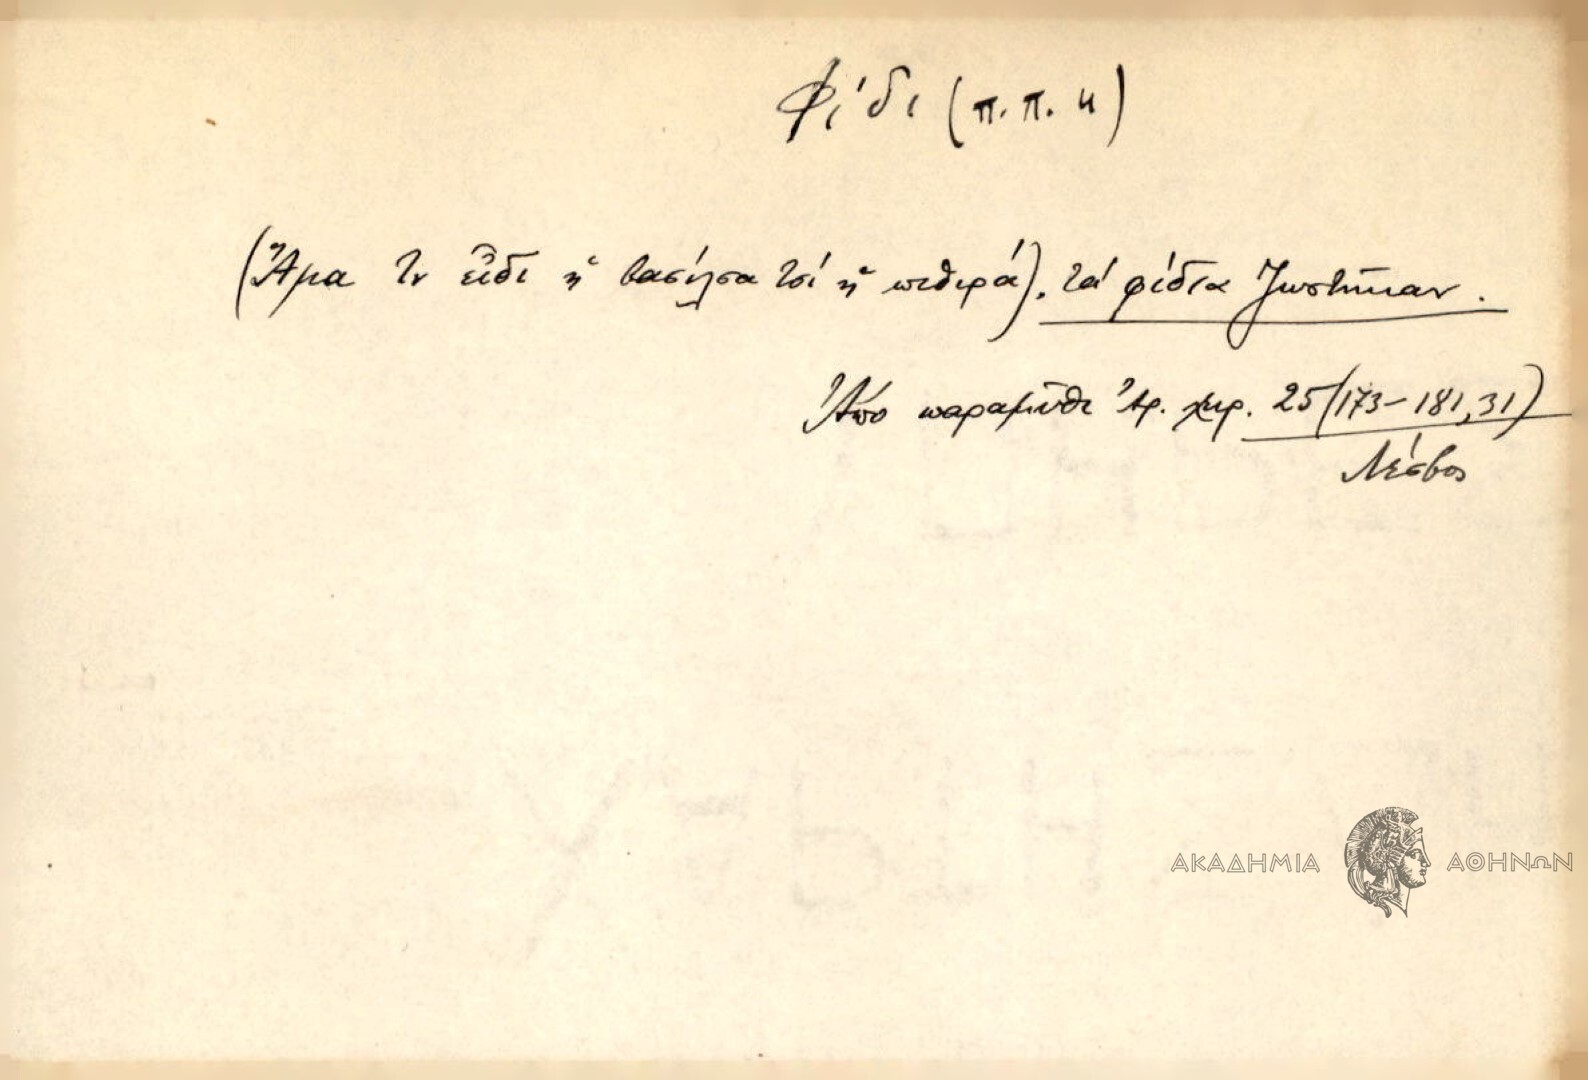 Φίδι (π.π. 4)
(Ἅμα τν εἶδι ἡ βασίλσα τσί ἡ πιθιρά). τά φίδια ζωστῆκαν.
Ἀπό παραμῦθι Ἀρ. χειρ. 25 (173-181, 31)
Λέσβος
ΑΚΑΔΗΜΙΑ ΑΘΗΝΩΝ